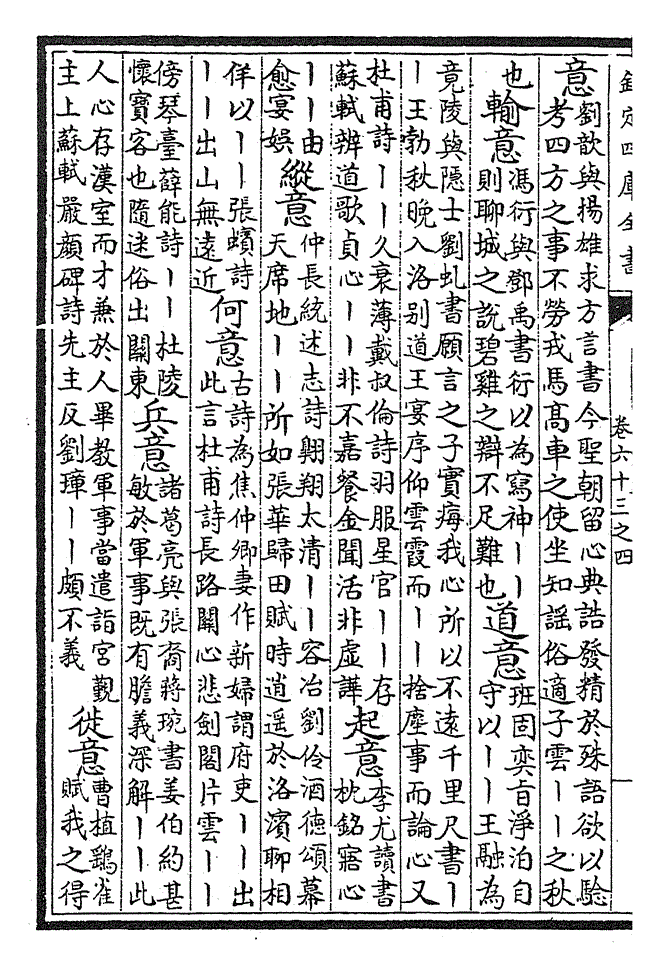 欽定四庫全書 卷六十三之四 一
意
劉歆與揚雄求方言書今聖朝留心典誥發精於殊語欲以驗
考四方之事不勞戎馬高車之使坐知謡俗適子雲丨丨之秋
也
輸意
馮衍與鄧禹書衍以為寫神丨丨
則聊城之說碧雞之辯不足難也
道意
班固奕旨淨泊自
守以丨丨王融為
竟陵與隱士劉虬書願言之子實痗我心所以不遠千里尺書丨
丨王勃秋晚入洛别道王宴序仰雲霞而丨丨捨塵事而論心又
杜甫詩丨丨久衰薄戴叔倫詩羽服星官丨丨存
蘇軾辨道歌貞心丨丨非不嘉餐金聞活非虛譁
起意
李尤讀書
枕銘寤心
丨丨由
愈宴娯
縱意
仲長統述志詩翺翔太清丨丨容冶劉伶酒德頌幕
天席地丨丨所如張華歸田賦時逍遥於洛濱聊相
佯以丨丨張蠙詩
丨丨出山無遠近
何意
古詩為焦仲卿妻作新婦謂府吏丨丨出
此言杜甫詩長路關心悲劍閣片雲丨丨
傍琴臺薛能詩丨丨杜陵
懷寶客也隨迷俗出關東
兵意
諸葛亮與張裔蔣琬書姜伯約甚
敏於軍事既有膽義深解丨丨此
人心存漢室而才兼於人畢教軍事當遣詣宫覲
主上蘇軾嚴顏碑詩先主反劉璋丨丨頗不義
徙意
曹植鷂雀
賦我之得